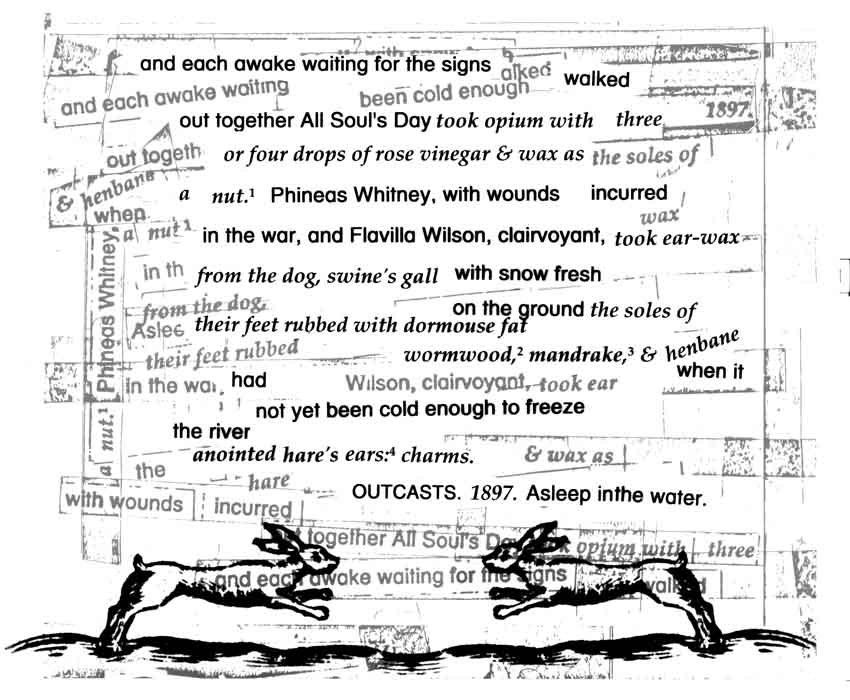 and each awake waiting for the signs
alked
walked
and each awake waiting
been cold enough
out together All Soul's Day took opium with three
1897.
out togeth
or four drops of rose vinegar & wax as
the soles of
& henbane
when
a nut.¹ Phineas Whitney, with wounds incurred
wax
a nut¹
in the war, and Flavilla Wilson, clairvoyant, took ear-wax
Phineas Whitney,
a nut.¹
in th
from the dog, swine's gall with snow fresh
from the dog,
on the ground the soles of
Aslee
their feet rubbed with dormouse fat
their feet rubbed
wormwood,² mandrake,³ & henbane
when it
in the wa
had
Wilson, clairvoyant, took ear
not yet been cold enough to freeze
the river
anointed hare's ears:⁴ charms.
& wax as
the
hare
with wounds
incurred
OUTCASTS. 1897. Asleep inthe water.
together All Soul's Da
ok opium with three
and each awake waiting for the signs
walked